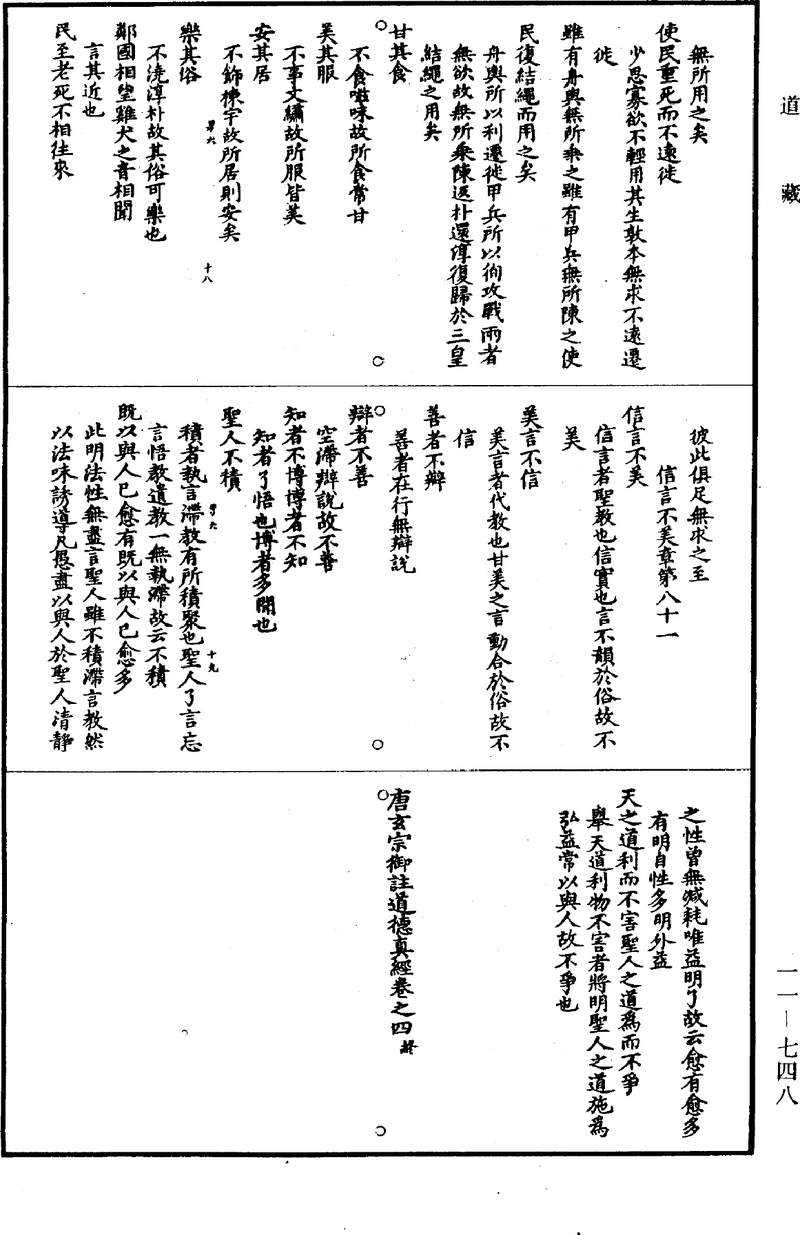 道藏
無所用之矣
使民重死而不遠徙
少思寡欲不輕用其生敦本無求不遠遷
徙
雖有舟輿無所乘之雖有甲兵無所陳之使
民復結繩而用之矣
舟輿所以利遷徙甲兵所以徇攻戰兩者
無欲故無所乘陳返朴還淳復歸於三皇
結繩之用矣
甘其食
不食滋味故所食常甘
美其服
不事文繡故所服皆美
安其居
不飾棟宇故所居則安矣
十八
樂其俗
不澆淳朴故其俗可樂也
鄰國相望雞犬之音相聞
言其近也
民至老死不相往來
彼此俱足無求之至
信言不美章第八十一
信言不美
信言者聖教也信實也言不韻於俗故不
美
美言不信
美言者代教也甘美之言動合於俗故不
信
善者不辯
善者在行無辯說
辯者不善
空滯辯說故不善
知者不博博者不知
知者了悟也博者多聞也
聖人不積
積者執言滯教有所積聚也聖人了言忘
十九
言悟教遺教一無執滯故云不積
既以與人已愈有既以與人已愈多
此明法性無盡言聖人雖不積滯言教然
以法味誘導凡愚盡以與人於聖人清靜
之性曾無減耗唯益明了故云愈有愈多
有明自性多明外益
天之道利而不害聖人之道為而不爭
舉天道利物不害者將明聖人之道施為
弘益常以與人故不爭也
唐玄宗御註道德真經卷之四終
一一－七四八